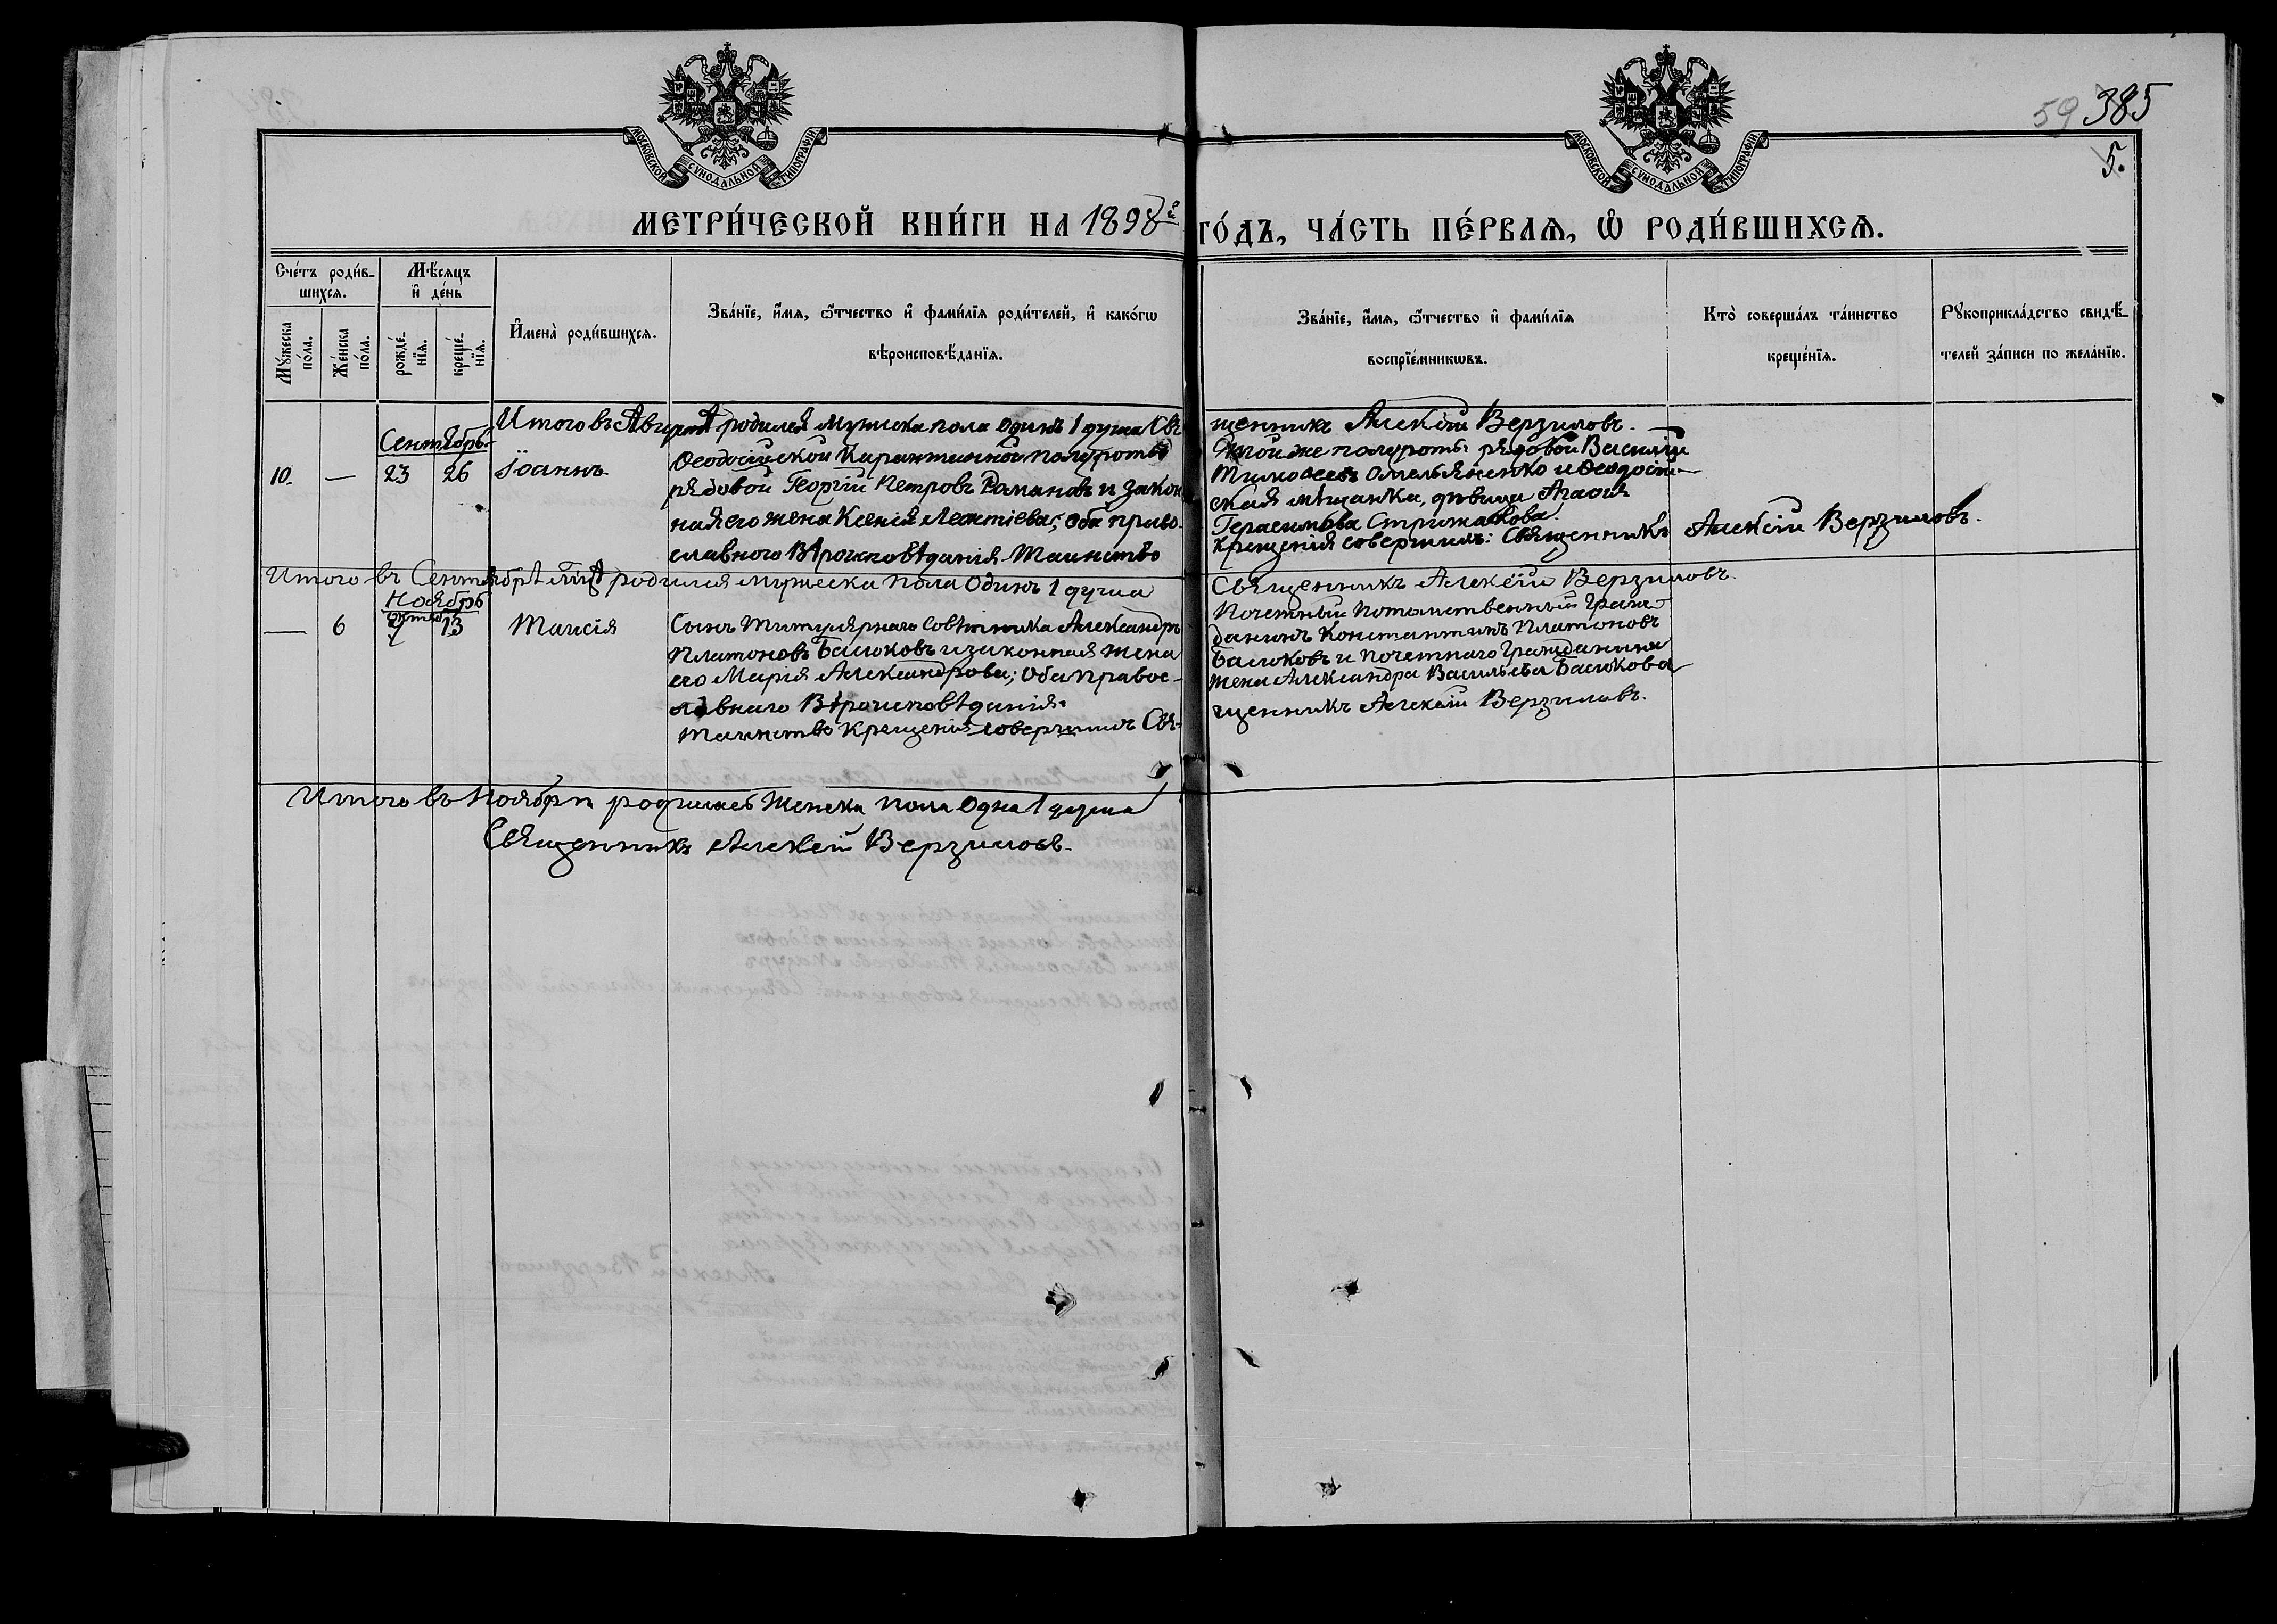 59 385
5.
МОСКОВСКОЙ СѴНОДАЛЬНОЙ ТИПОГРАФІИ
МОСКОВСКОЙ СѴНОДАЛЬНОЙ ТИПОГРАФІИ
МЕТРИ́ЧЕСКОЙ КНИ́ГИ НА 1898й ГО́ДЪ, ЧА́СТЬ ПЕ́РВАѦ, Ѽ РОДИ́ВШИХСѦ.
Сче́тъ роди́в-
шихсѧ.
Мꙋ́жеска по́ла.
Же́нска по́ла.
Мѣ́сяцъ
и҆ де́нь
рожде́-
нїѧ.
креще́-
нїѧ.
И҆мена̀ роди́вшихсѧ.
Зва́нїе, и҆́мѧ, ѻ҆́тчество и҆ фами́лїѧ роди́телей, и҆ како́гѡ
вѣроисповѣ́данїѧ.
Зва́нїе, и҆́мѧ, ѻ҆́тчество и҆ фами́лїѧ
воспрїе́мникѡвъ.
Кто̀ соверша́лъ та́инство
креще́нїѧ.
Рꙋкоприкла́дство свидѣ́-
телей за́писи по жела́нїю.
Итого въ Августѣ родился мужеска пола одинъ 1 душа Свя
щенникъ Алексій Верзиловъ.
Сентябрь
10. — 23 26 Іоаннъ
Ѳеодосійской Карантинной полуроты
рядовой Георгій Петровъ Романовъ и закон
ная его жена Ксенія Леонтіева; оба право-
славного Вѣроисповѣданія. Таинство
Тойже полуроты рядовой Василій
Тимоѳеевъ Омельяненко и Ѳеодосій-
ская мѣщанка, дѣвица Агаѳія
Герасимова Стрижакова.
Крещенія совершилъ: Священникъ Алексій Верзиловъ.
Итого въ Сентябрѣ мцѣ родился мужеска пола Одинъ 1 душа
Священникъ Алексій Верзиловъ.
Ноябрь
— 6 9 13 Таисія
Сынъ Титулярнаго Совѣтника Александръ
Платоновъ Басюковъ и законная жена
его Марія Александрова; Оба правос-
лавнаго Вѣроисповѣданія.
Таинство Крещенія совершилъ Свя-
Почетный Потомственный Граж-
данинъ Константинъ Платоновъ
Басюковъ и почетнаго Гражданина
жена Александра Васильева Басюкова
щенникъ Алексій Верзиловъ.
Итого въ Ноябри родилась Женска пола Одна 1 душа
Священникъ Алексій Верзиловъ.